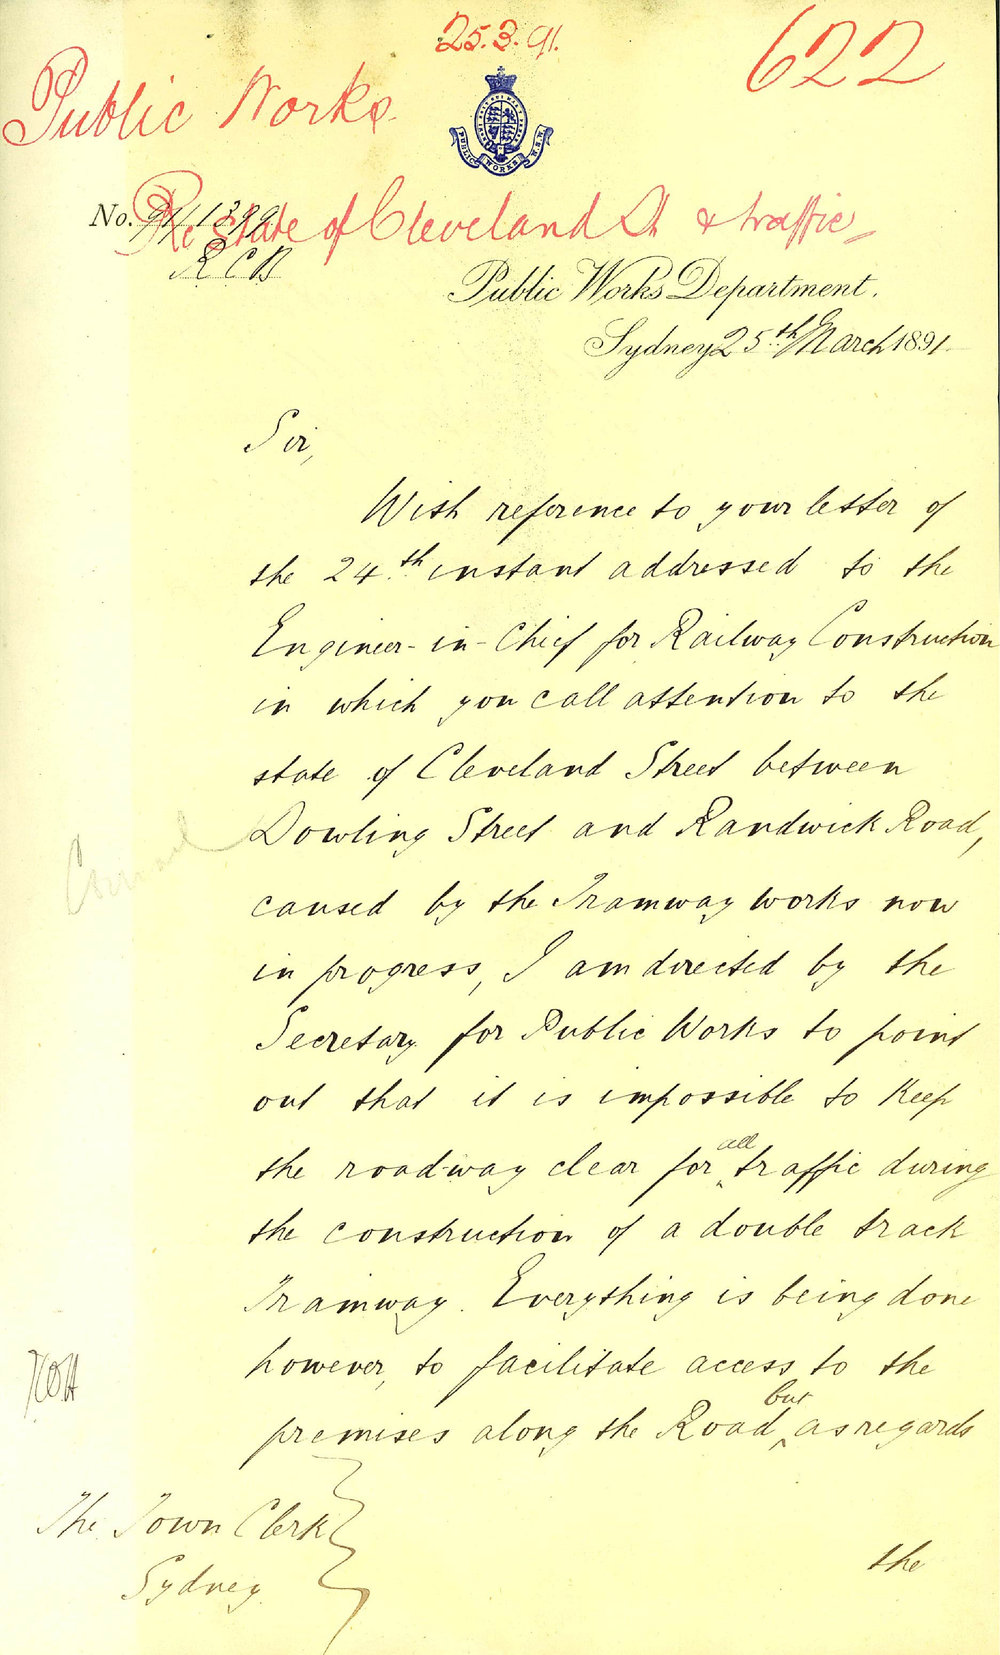 25.3.91.
622
Public Works.
PUBLIC WORKS N.S.W.
No. 91/1399
Re State of Cleveland St & traffic
R C B
Public Works Department.
Sydney 25th March 1891.
Sir,
With reference to your letter of
the 24th instant addressed to the
Engineer-in-Chief for Railway Construction
in which you call attention to the
state of Cleveland Street between
Dowling Street and Randwick Road,
caused by the Tramway works now
in progress, I am directed by the
Secretary for Public Works to point
out that it is impossible to keep
the roadway clear for all traffic during
the construction of a double track
Tramway. Everything is being done
however, to facilitate access to the
premises along the Road, but as regards
The Town Clerk
Sydney.
the